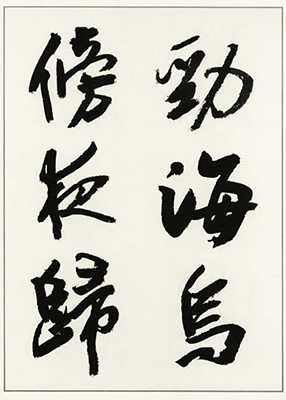 勁海鳥
傍夜歸